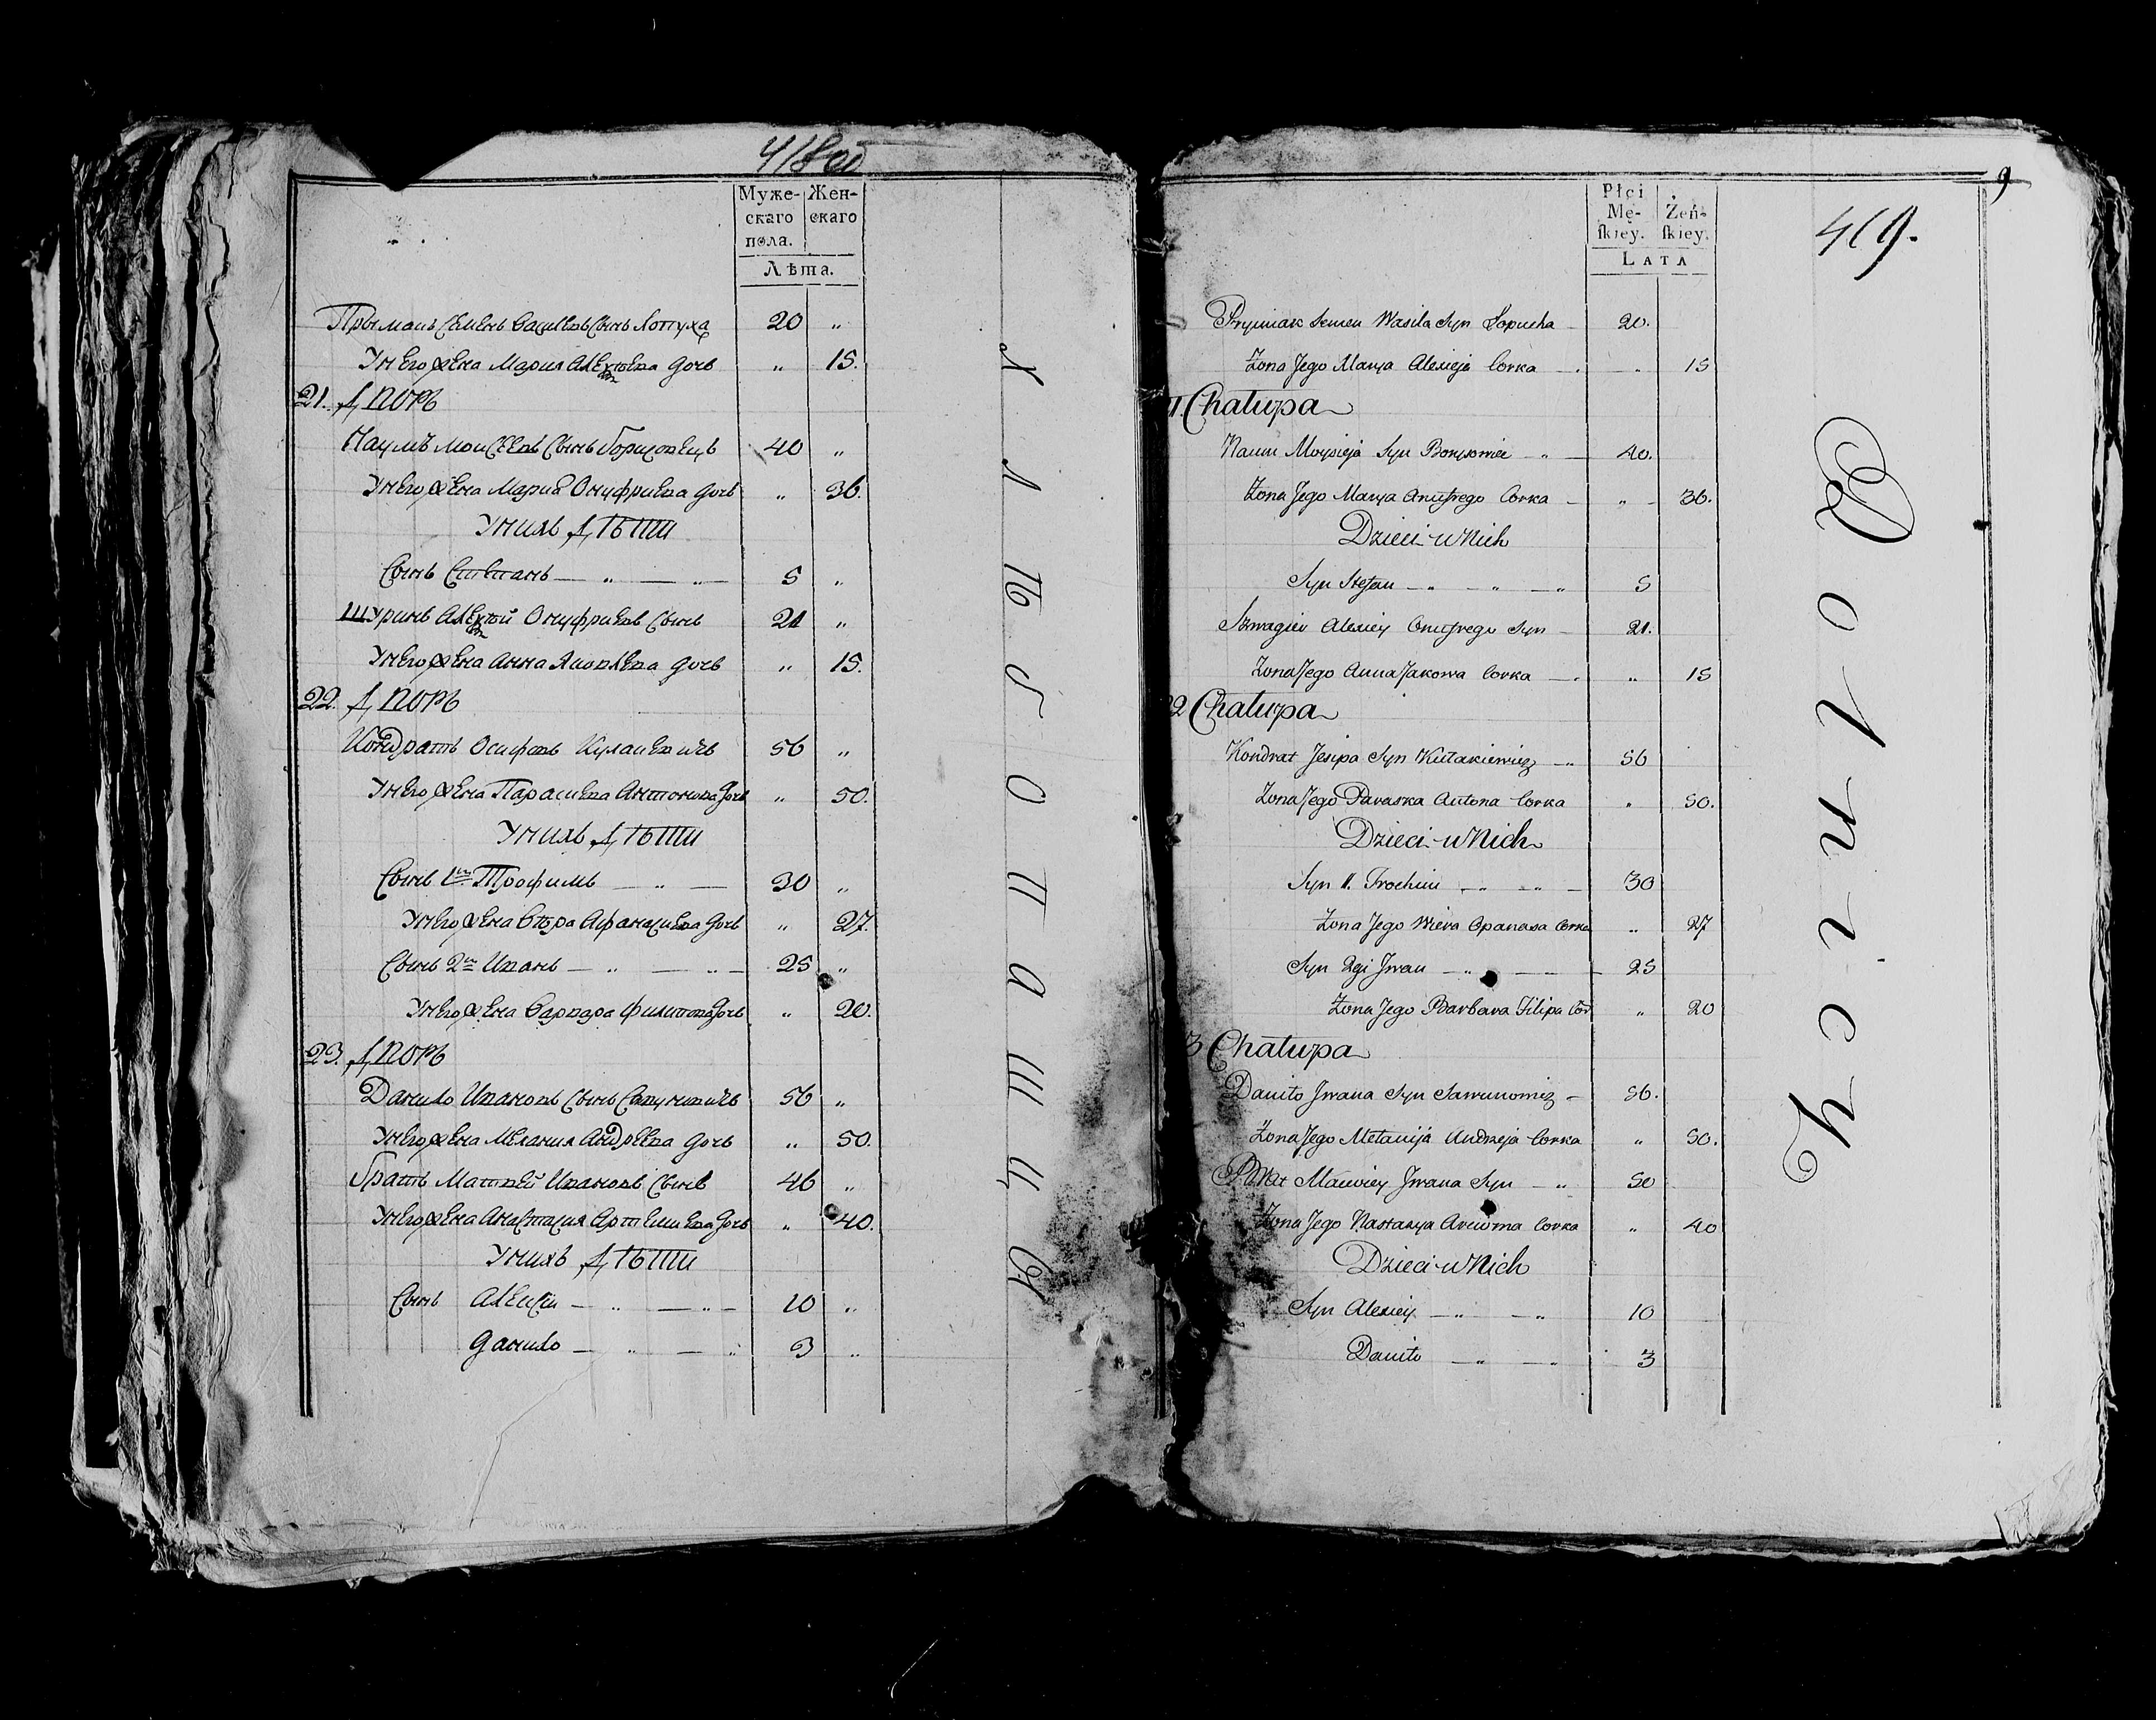 418 об
Муже-скаго пола. Жен-скаго
Лѣта.
Прымакъ Семенъ Васілевъ Сынъ Лопуха 20 „
Унего жена Мария Алексѣева дочь „ 15.
21. Дворъ
Наумъ Моисеевъ Сынъ Борисовецъ 40 „
Унего жена Мария Онуфриева дочь „ 36.
Унихъ Дѣти
Сынъ Степанъ — „ — „ — 5 „
Шуринъ Алексѣй Онуфриевъ Сынъ 21 „
Унего жена Анна Яковлева дочь „ 15.
22. Дворъ
Кондратъ Осифовъ Кулакевичъ 56 „
Унего жена Параскева Антонова дочь „ 50.
Унихъ Дѣти
Сынъ 1й Трофимъ — „ — 30 „
Унего жена Вѣра Афанасиева дочь „ 27.
Сынъ 2й Иванъ — „ — „ — 25 „
Унего жена Варвара Филипова дочь „ 20.
23. Дворъ
Данило Ивановъ Сынъ Савуновичъ 56 „
Унего жена Мелания Андреева дочь „ 50.
Братъ Матвей Ивановъ Сынъ 46 „
Унего жена Анастасия Артемиева дочь „ 40.
Унихъ Дѣти
Сынъ Алексей — „ — „ — 10 „
Данило — „ — „ 3 „
9
419.
Płci Mę-skiey. Żeń-skiey.
LATA
Prymak Semen Wasila Syn Łopucha — 20.
Żona Jego Marya Alexieja Corka — „ 15
21. Chałupa
Naum Moysieja Syn Borysowiec „ — 40.
Żona Jego Marya Onufrego Corka — „ — 36.
Dzieci u Nich
Syn Stefan — „ — „ — „ 5
Szwagier Alexiey Onufrego Syn — 21.
Żona Jego Anna Jakowa Corka — „ 15
22 Chałupa
Kondrat Jesipa Syn Kułakiewicz — „ 56
Żona Jego Paraska Antona Corka „ 50.
Dzieci u Nich
Syn 1. Trochim — „ — „ — 30
Żona Jego Wiera Opanasa Corka „ 27
Syn 2gi Jwan — „ — 25
Żona Jego Barbara Filipa Cor „ 20
23 Chałupa
Daniło Jwana Syn Sawunowicz — 56.
Żona Jego Mełanija Andrzeja Corka „ 50.
Brat Maciey Jwana Syn — „ 50
Żona Jego Nastazya Arciuma Corka „ 40
Dzieci u Nich
Syn Alexiey — „ — „ 10
Daniło — „ — „ 3
Dolnicy